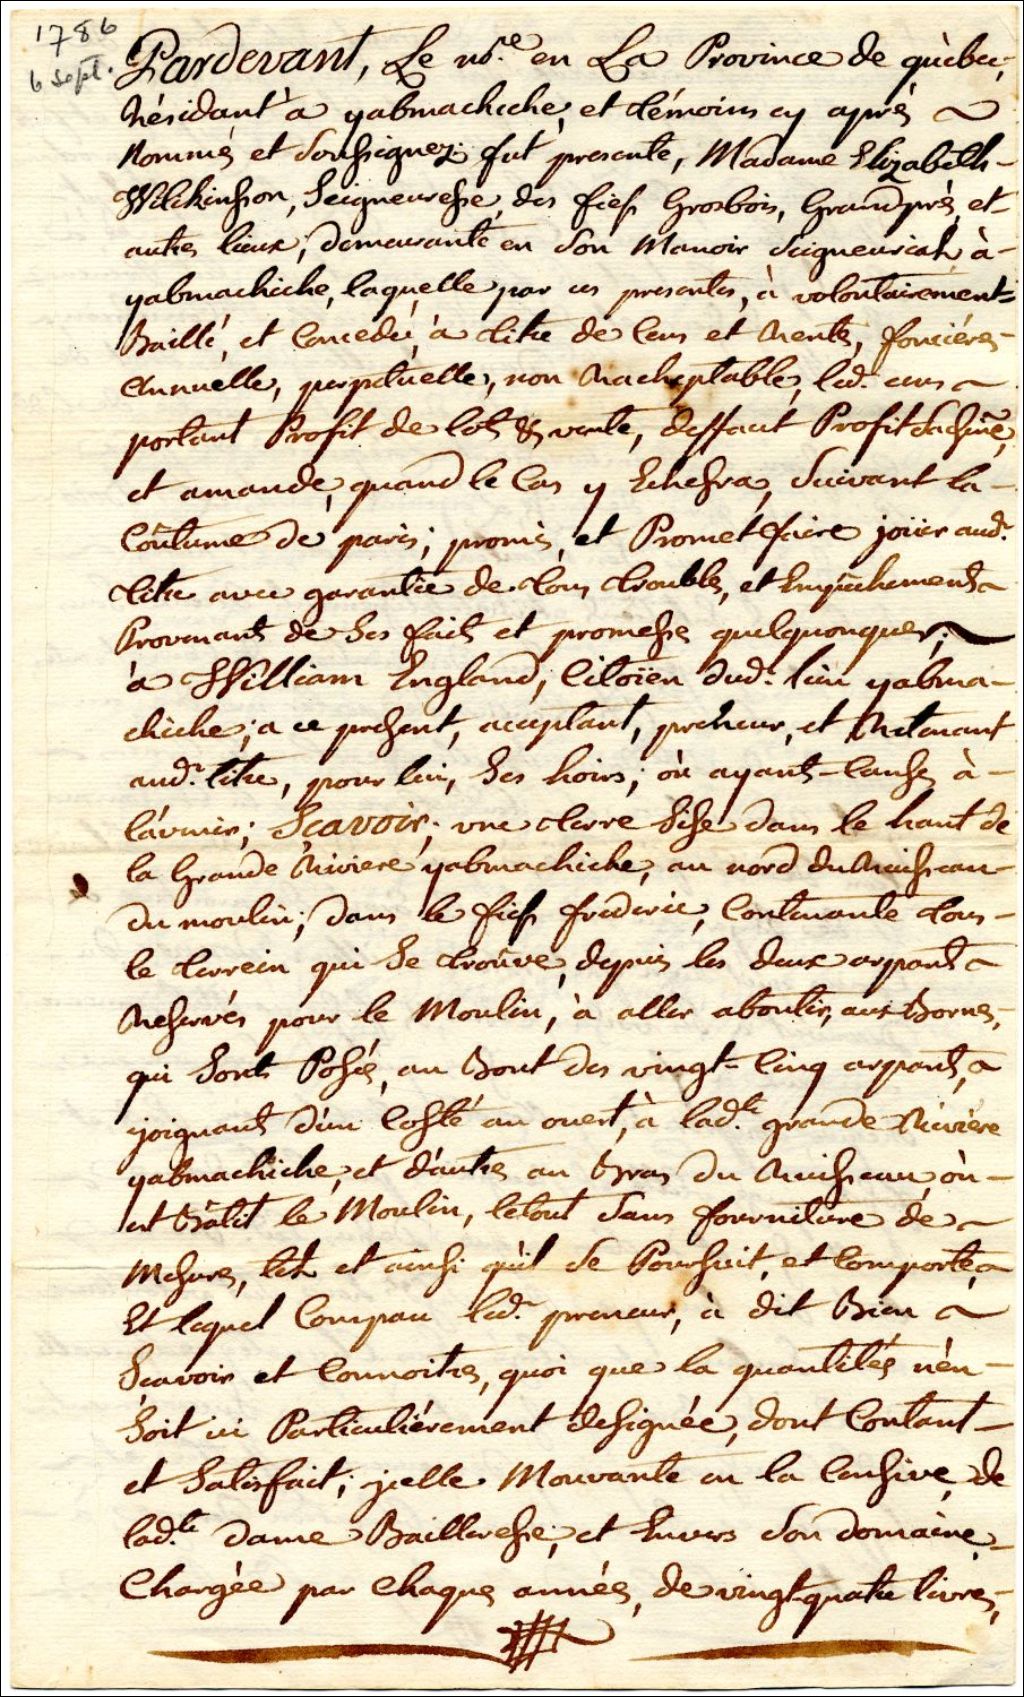 1786
6 Sept.
Pardevant, Le nore. en La Province de quèbec,
Résidant à yabmachiche, et témoins cy après ~
Nommés et Soussignez; fut presente, Madame Elizabeth-
Wilkinsson, Seigneuresse, des fiefs Grosbois, Grandprés, et-
autres lieux; demeurante en Son Manoir Seigneurial, à-
yabmachiche, laquelle par ces presentes, à volontairement-
Baillé, et Concedé, à titre de Cens et Rentes, fonciéres-
Annuelle, perpétuelle, non Racheptable, led. cens ~
portant Profit de lots & vente, deffaut Profit Saisine,
et amande, quand le Cas y Echesra, Suivant la-
Coûtume de paris; promis, et Promet faire joüir audt.
titre avec garantie de tous troubles, et Empêchements ~
Provenants de Ses faits et promesse quelquonques; ~
à William England, Citoïen dudt. lieu yabma-
chiche, a ce present, acceptant, preneur, et Retenant
audt. titre, pour lui, Ses hoirs; où ayants-Cause, à-
l'ávenir; Sçavoir; vne terre Sise dans le haut de
la Grande Riviere yabmachiche, au nord du Ruisseau-
du moulin; dans le fief frederic, Contenante tous-
le terrein qui Se troûve, depuis les deux arpants ~
Reservés pour le Moulin, à aller aboutir, aux Bornes,
qui Sont Posés, au Bout des vingt-Cinq arpants, ~
joignants d'un Costé au ouest, à ladte. grande Rivière
yabmachiche, et d'autres au Bras du Ruisseau, où-
est Bâtit le Moulin, letout Sans fourniture de ~
Mesures, tel et ainsi qu'il Se Poursuit, et Comporte, ~
Et lequel Compau ledt. preneur, à dit Bien ~
Scavoir et Connoitres, quoi que la quantités n'èn-
Soit ici Particuliérement designée, dont Contant-
et Satisfait; jcelle Mouvante en la Censive, de
ladte. dame Bailleresse; et Envers Son domaine,-
Chargée par Chaque années, de vingt-quatre livres,